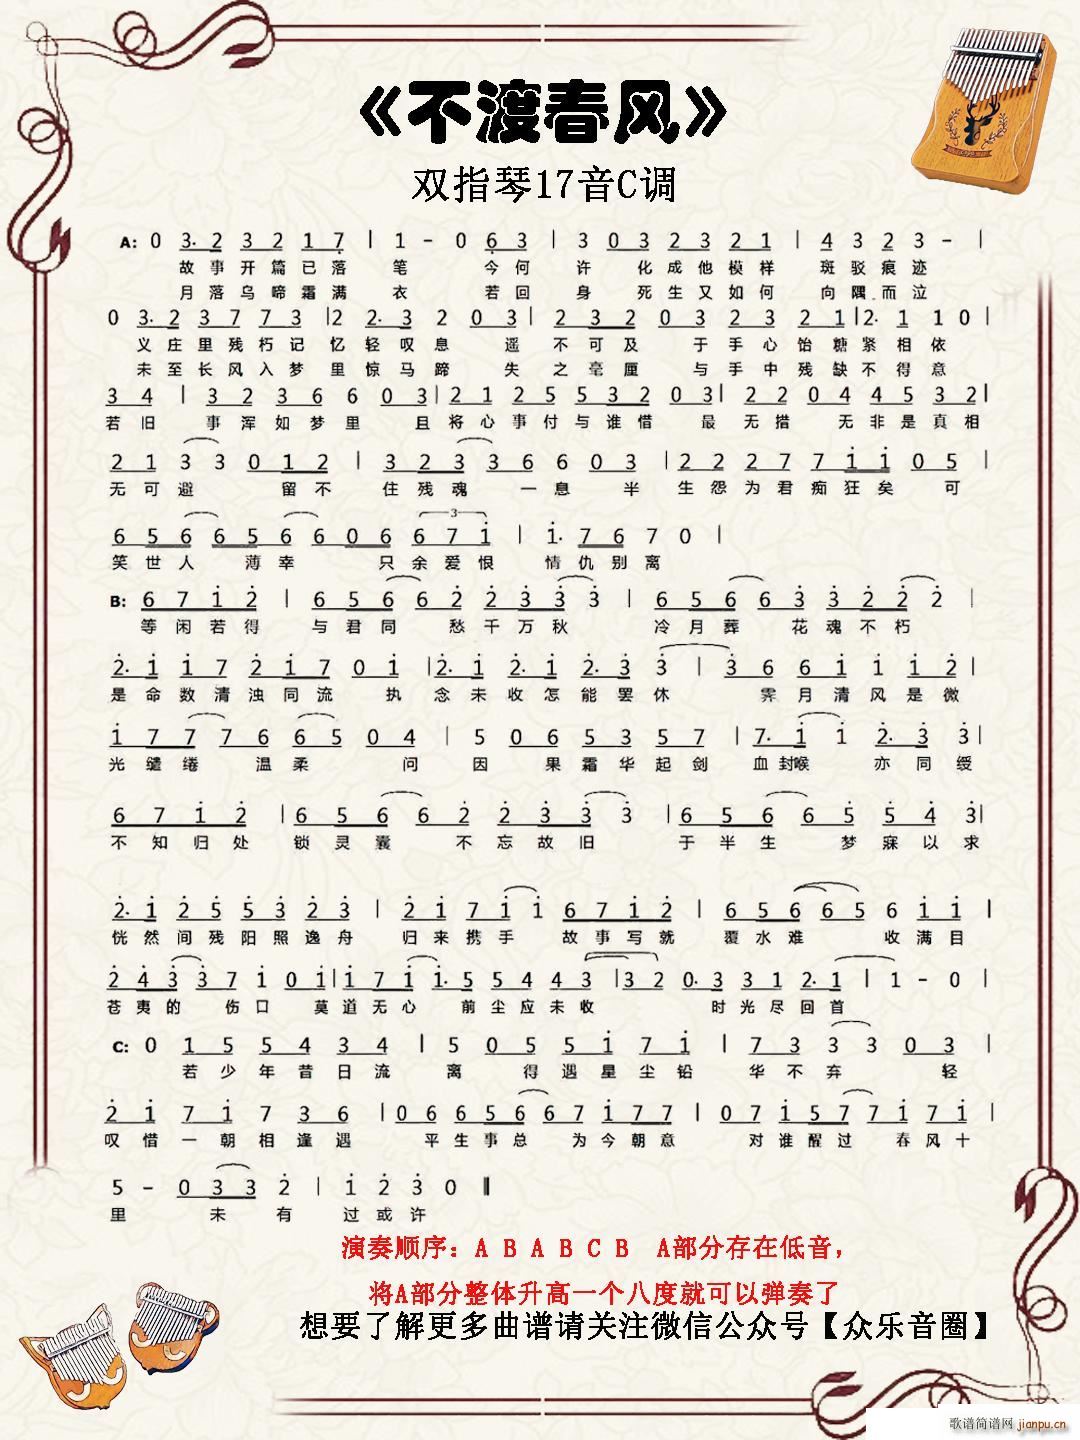 《不渡春风》
双指琴17音C调
A: 0 3. 2 3 2 1 7 | 1 - 0 6 3 | 3 0 3 2 3 2 1 | 4 3 2 3 - |
故事开篇已落 笔 今何 许 化成他模样 斑驳痕迹
月落乌啼霜满 衣 若回 身 死生又如何 向隅而泣
0 3. 2 3 7 7 3 | 2 2. 3 2 0 3 | 2 3 2 0 3 2 3 2 1 | 2. 1 1 0 |
义庄里残朽记 忆轻叹息 遥 不可及 于手心饴糖紧相依
未至长风入梦 里惊马蹄 失 之毫厘 与手中残缺不得意
3 4 | 3 2 3 6 6 0 3 | 2 1 2 5 5 3 2 0 3 | 2 2 0 4 4 5 3 2 |
若旧 事浑如梦里 且将心事付与谁惜 最 无措 无非是真相
2 1 3 3 0 1 2 | 3 2 3 3 6 6 0 3 | 2 2 2 7 7 i i 0 5 |
无可避 留不 住残魂 一息 半 生怨为君痴狂矣 可
6 5 6 6 5 6 6 0 6 6 7 i | i. 7 6 7 0 |
笑世人 薄幸 只余爱恨 情仇别离
B: 6 7 i 2 | 6 5 6 6 2 2 3 3 3 | 6 5 6 6 3 3 2 2 2 |
等闲若得 与君同 愁千万秋 冷月葬 花魂不朽
2. i i 7 2 i 7 0 i | 2. i 2. i 2. 3 3 | 3 6 6 i i i 2 |
是命数清浊同流 执 念未收怎能罢休 霁月清风是微
i 7 7 7 6 6 5 0 4 | 5 0 6 5 3 5 7 | 7. i i 2. 3 3 |
光缱绻 温柔 问 因 果霜华起剑 血封喉 亦同绶
6 7 i 2 | 6 5 6 6 2 2 3 3 3 | 6 5 6 6 5 5 4 3 |
不知归处 锁灵囊 不忘故旧 于半生 梦寐以求
2. i 2 5 5 3 2 2 | 2 i 7 i i 6 7 i 2 | 6 5 6 6 5 6 i i |
恍然间残阳照逸舟 归来携手 故事写就 覆水难 收满目
2 4 3 3 7 i 0 i | i 7 i i. 5 5 4 4 3 | 3 2 0. 3 3 1 2. 1 | 1 - 0 |
苍夷的 伤口 莫道无心 前尘应未收 时光尽回首
C: 0 1 5 5 4 3 4 | 5 0 5 5 i 7 i | 7 3 3 3 0 3 |
若少年昔日流 离 得遇星尘铅 华不弃 轻
2 i 7 i 7 3 6 | 0 6 6 5 6 6 7 i 7 7 | 0 7 i 5 7 7 i 7 i |
叹惜一朝相逢遇 平生事总 为今朝意 对谁醒过 春风十
5 - 0 3 3 2 | i 2 3 0 ‖
里 未 有 过或许
演奏顺序：A B A B C B A部分存在低音，
将A部分整体升高一个八度就可以弹奏了
想要了解更多曲谱请关注微信公众号【众乐音圈】
歌谱简谱网
jianpu.cn